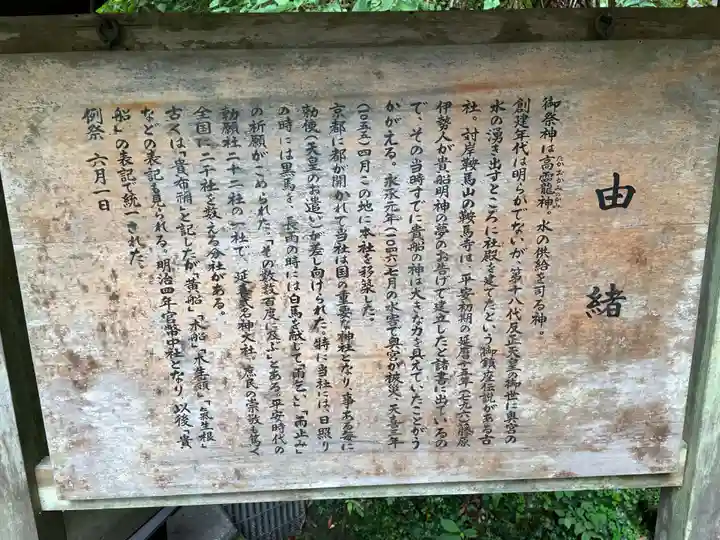 由緒
御祭神は高龗神。水の供給を司る神。
たかおかみのかみ
創建年代は明らかでないが、第十八代反正天皇の御世に奥宮の
水の湧き出すところに社殿を建てたという御鎮座伝説がある古
社。対岸鞍馬山の鞍馬寺は、平安初期の延暦十五年(七九六)藤原
伊勢人が貴船明神の夢のお告げで建立したと諸書に出ているの
で、その当時すでに貴船の神は大きな力を具えていたことがう
かがえる。永承元年(一〇四六)七月の水害で奥宮が被災、天喜三年
(一〇五五)四月この地に本社を移築した。
京都に都が開かれて当社は国の重要な神社となり、事ある毎に
勅使(天皇のお遣い)が差し向けられた。特に当社には、日照り
の時には黒馬を、長雨の時には白馬を献じて「雨乞い」「雨止み」
の祈願がこめられた。「その数数百度に及ぶ」とある。平安時代の
勅願社二十二社の一社で、延喜式名神大社、庶民の崇敬も篤く
全国に二千社を数える分社がある。
古くは「貴布禰」と記したが「黄船」「木船」「木生嶺」「氣生根」
などの表記も見られる。明治四年官幣中社となり、以後「貴
船」の表記で統一された。
例祭 六月一日